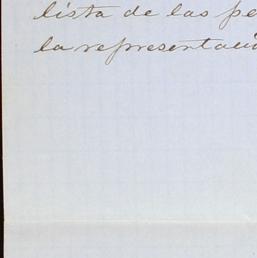 lista de las pe
la representació